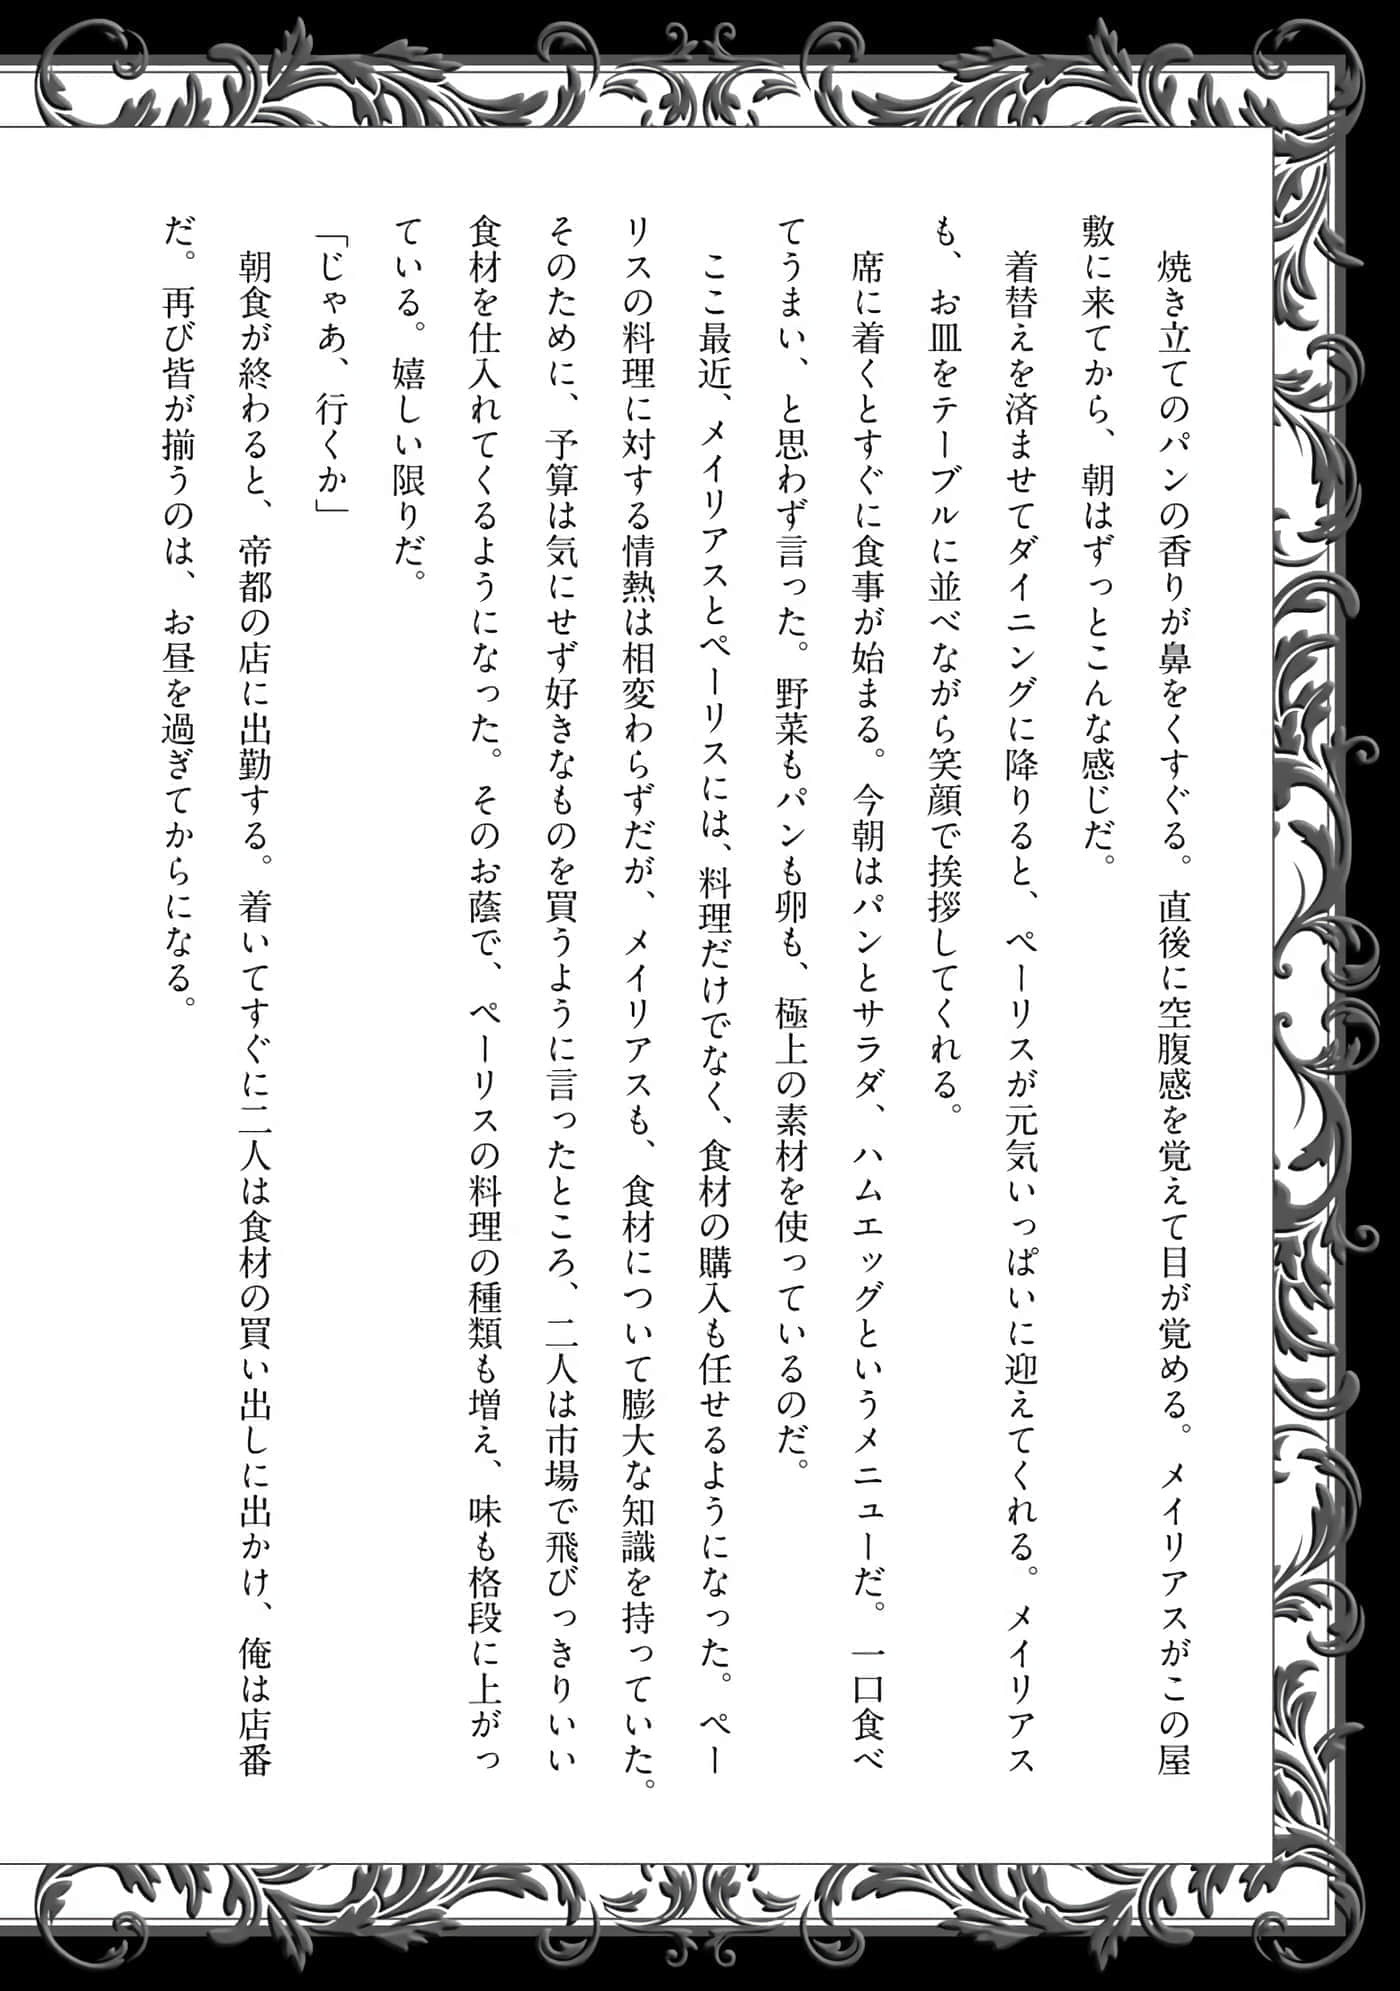 焼き立てのパンの香りが鼻をくすぐる。直後に空腹感を覚えて目が覚める。メイリアスがこの屋
敷に来てから、朝はずっとこんな感じだ。
着替えを済ませてダイニングに降りると、ペーリスが元気いっぱいに迎えてくれる。メイリアス
も、お皿をテーブルに並べながら笑顔で挨拶してくれる。
席に着くとすぐに食事が始まる。今朝はパンとサラダ、ハムエッグというメニューだ。一口食べ
てうまい、と思わず言った。野菜もパンも卵も、極上の素材を使っているのだ。
ここ最近、メイリアスとペーリスには、料理だけでなく、食材の購入も任せるようになった。ペー
リスの料理に対する情熱は相変わらずだが、メイリアスも、食材について膨大な知識を持っていた。
そのために、予算は気にせず好きなものを買うように言ったところ、二人は市場で飛びっきりいい
食材を仕入れてくるようになった。そのお蔭で、ペーリスの料理の種類も増え、味も格段に上がっ
ている。嬉しい限りだ。
「じゃあ、行くか」
朝食が終わると、帝都の店に出勤する。着いてすぐに二人は食材の買い出しに出かけ、俺は店番
だ。再び皆が揃うのは、お昼を過ぎてからになる。